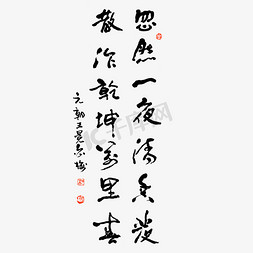 忽然一夜清香发
散作乾坤万里春
元朝王冕白梅